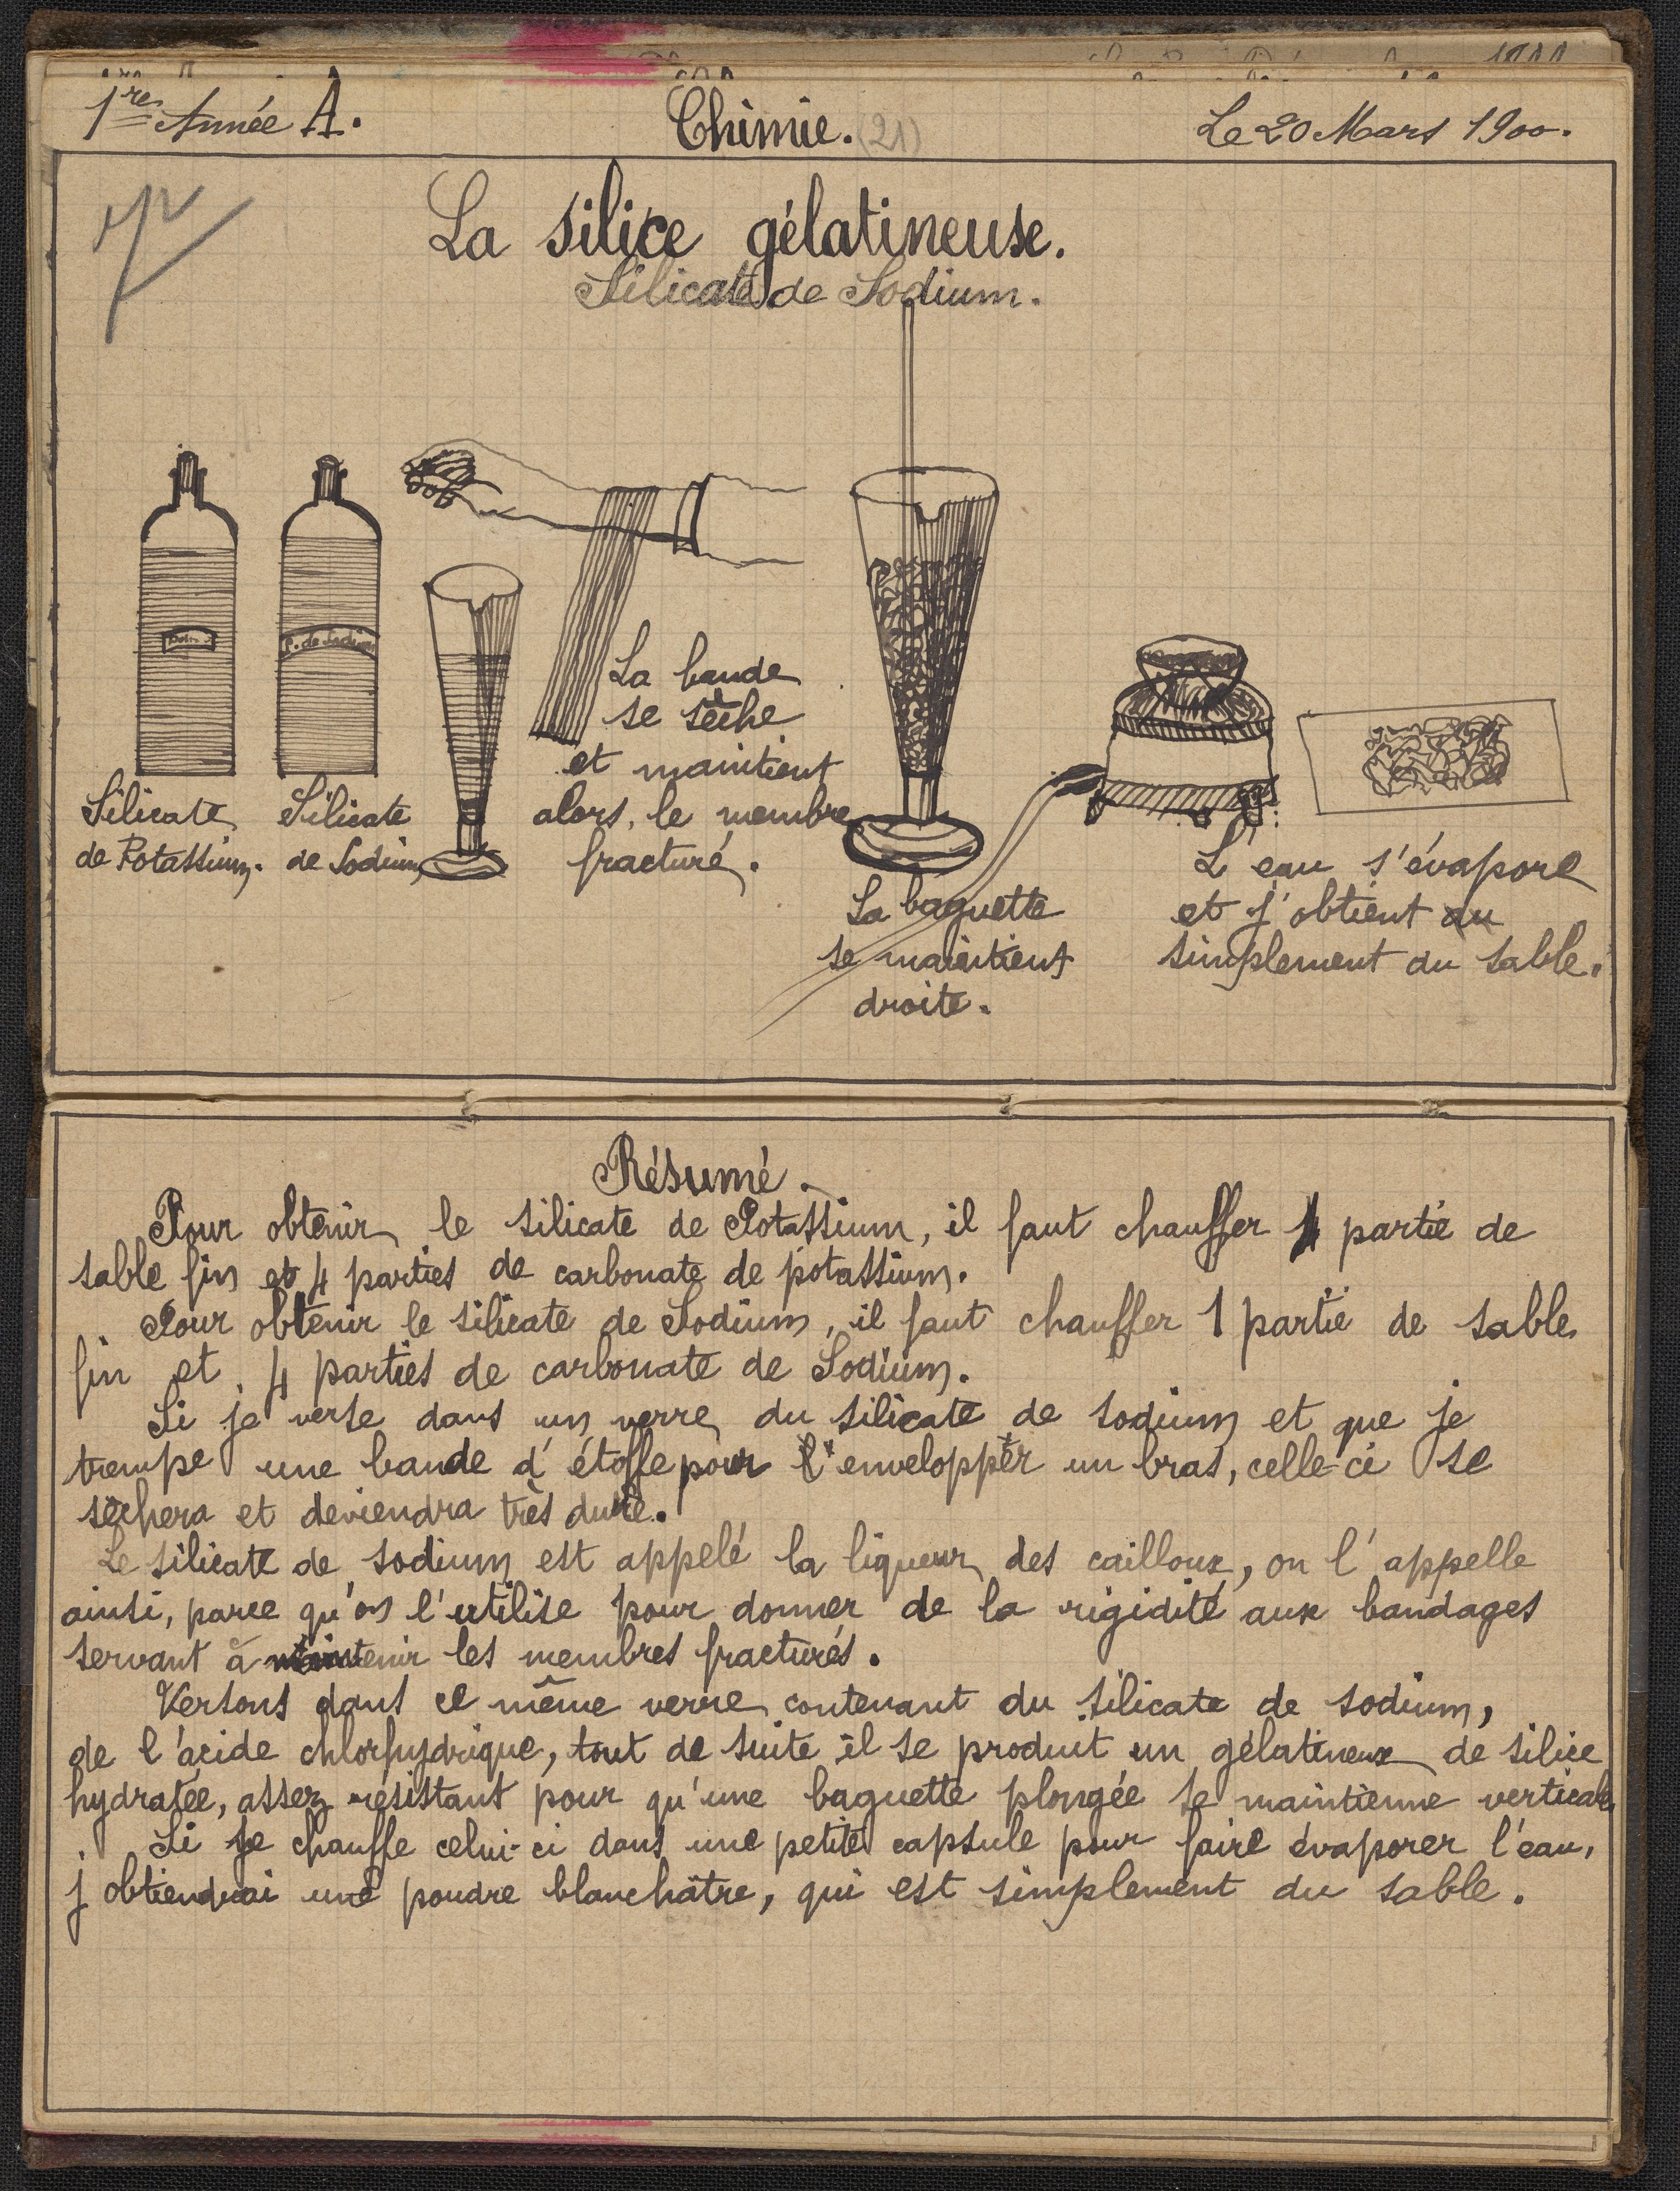 1re Année A.
Chimie. (21)
Le 20 Mars 1900.
La silice gélatineuse.
Silicate de Sodium.
S. de Sodium
Silicate
de Potassium.
Silicate
de Sodium
La bande
se sèche
et maintient
alors, le membre
fracturé.
La baguette
se maintient
droite.
L'eau s'évapore
et j'obtient du
simplement du sable.
Résumé.
Pour obtenir le silicate de Potassium, il faut chauffer 1 partie de
sable fin et 4 parties de carbonate de potassium.
Pour obtenir le silicate de Sodium, il faut chauffer 1 partie de sable
fin et 4 parties de carbonate de Sodium.
Si je verse dans un verre du silicate de sodium et que je
trempe une bande d'étoffe pour l'envelopper un bras, celle-ci se
sèchera et deviendra très dure.
Le silicate de sodium est appelé la liqueur des cailloux, on l'appelle
ainsi, parce qu'on l'utilise pour donner de la rigidité aux bandages
servant à maintenir les membres fracturés.
Versons dans ce même verre contenant du silicate de sodium,
de l'acide chlorhydrique, tout de suite il se produit un gélatineux de silice
hydratée, assez résistant pour qu'une baguette plongée se maintienne verticale
. Si je chauffe celui-ci dans une petite capsule pour faire évaporer l'eau,
j'obtiendrai une poudre blanchâtre, qui est simplement du sable.